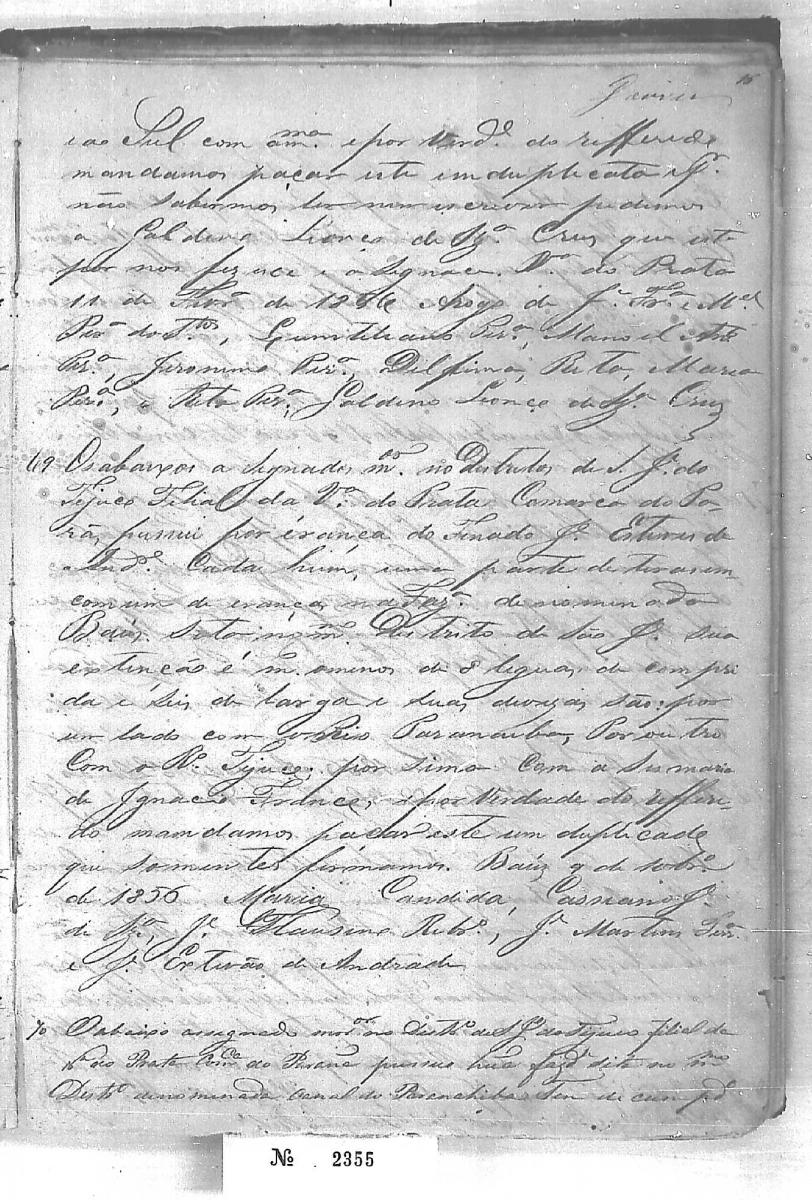 16
e ao Sul com a mma. e por Verde. do refferido
mandamos paçar este em duplicata e Pr.
não sabermos ler nem escrever pedimos
a Galdino de Sza. Cruz que este
por nos fizece e a Signace. Va. do Prata
11 de de 1856 Arogo de Je.
Pera. do, Pera., Manoel
Pra., Jeronimo Pera., Delfina, Rita, Maria
Pera., e Rita Pera., Galdino de Sza. Cruz
69 Os abaixos a Signados mes. no Distritos de S. Je. do
Tejuco Filial da Va. do Prata Comarca do Pa-
rã, pussui por érança do Finado Je. Esteves de
Andre. Cada hum, uma parte de teras em
comum de erança na Faza. denominada
Baús sita no mmo. Distrito de São Je. sua
extinção é m. o menos de 8 leguas de compri
da e seis de larga e suas divizas são: por
um lado com o Rio Paranaiba, Por outro
Com o Ro. Tijuco, por sima com a Sismaria
de Ignacio França, e por Verdade do reffiri-
do mandamos paçar este em duplicade
que somentes firmamos. Baús 9 de
de 1856 Maria Candida, Casciano Je.
de, Je. Flausino Ribro., Je. Martins
e Je. Estevão de Andrade
70 O abaixo assignado mor. no Destro. de S. Je. do Tejuco filial da
Va. do Prata Comca. do Paranã pussue huã fazda. sita no mmo.
Destro. denominada Canal do Paranahiba Tem de cumpdo.
No 2355